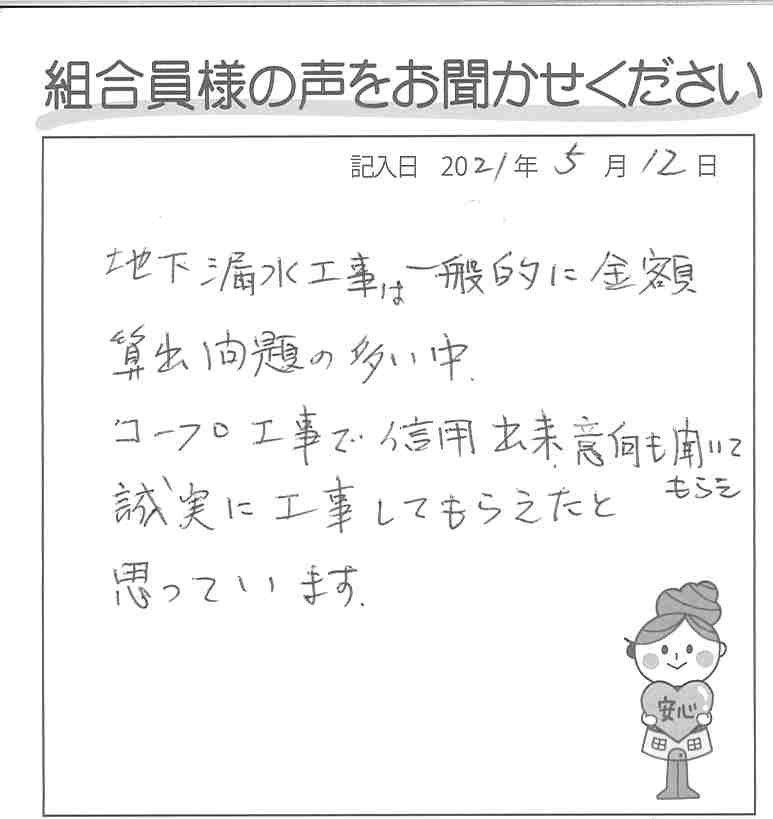 組合員様の声をお聞かせください
記入日 2021年 5月 12日
地下漏水工事は一般的に金額
算出問題の多い中、
コープロ工事で信用出来、意向も聞いて
もらえ
誠実に工事してもらえたと
思っています。
安心